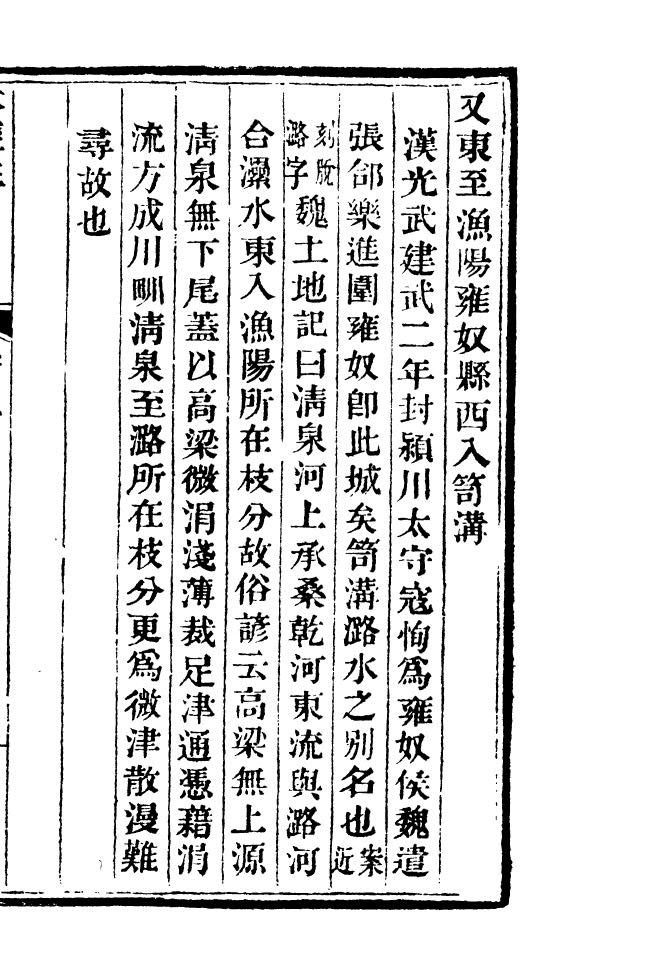 又東至漁陽雍奴縣西入笥溝
漢光武建武二年封潁川太守寇恂爲雍奴侯魏遣
張郃樂進圍雍奴卽此城矣笥溝潞水之别名也案近
刻脫潞字魏土地記曰淸泉河上承桑乾河東流與潞河
合㶟水東入漁陽所在枝分故俗諺云高梁無上源
淸泉無下尾蓋以高梁微涓淺薄裁足津通憑藉涓
流方成川甽淸泉至潞所在枝分更爲微津散漫難
尋故也